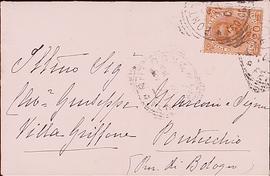 Illmo Sigr
Cavr Giuseppe Marconi e Signora
Villa Griffone
Pontecchio
(Prov. di Bologna)